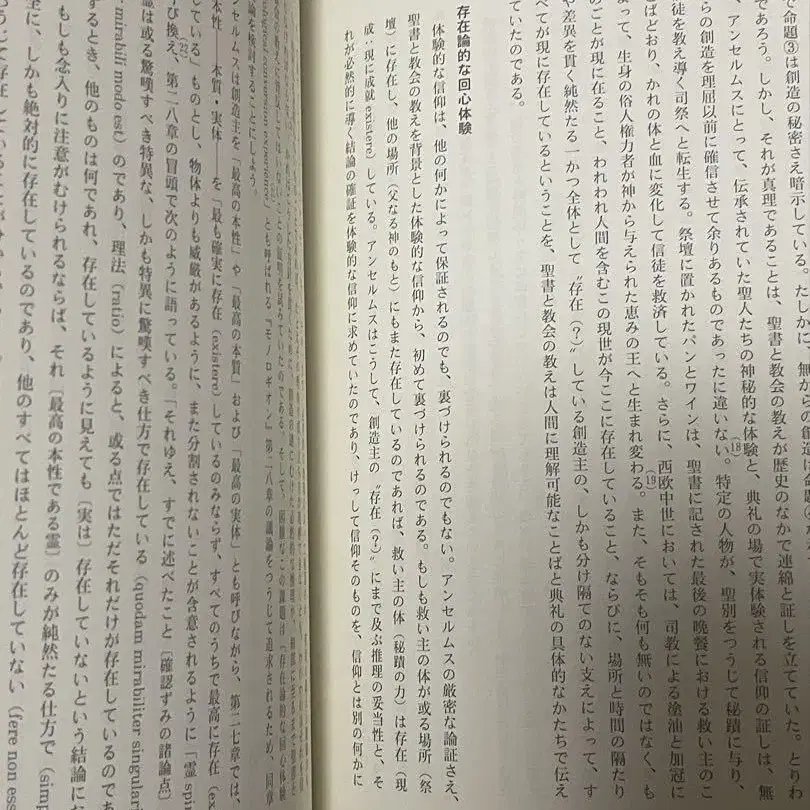 で命題③は創造の秘密さえ暗示している。たしかに、無からの創造は命題
であろう。しかし、それが真理であることは、聖書と教会の教えが歴史のなかで連綿と証しを立てていた。とりわ
、アンセルムスにとって、伝承されていた聖人たちの神秘的な体験と、典礼の場で実体験される信仰の証しは、無
らの創造を理屈以前に確信させて余りあるものであったに違いない。特定の人物が、聖別をつうじて秘蹟に与り、
徒を教え導く司祭へと転生する。祭壇に置かれたパンとワインは、聖書に記された最後の晩餐における救い主のこ
ばどおり、かれの体と血に変化して信徒を救済している。さらに、西欧中世においては、司教による塗油と加冠に
よって、生身の俗人権力者が神から与えられた恵みの王へと生まれ変わる。また、そもそも何も無いのではなく、も
のことが現に在ること、われわれ人間を含むこの現世が今ここに存在していること、ならびに、場所と時間の隔たり
や差異を貫く純然たる一かつ全体として〝存在（？）〟している創造主の、しかも分け隔てのない支えによって、す
べてが現に存在しているということを、聖書と教会の教えは人間に理解可能なことばと典礼の具体的なかたちで伝え
ていたのである。
(18)
(19)
存在論的な回心体験
体験的な信仰は、他の何かによって保証されるのでも、裏づけられるのでもない。アンセルムスの厳密な論証さえ、
聖書と教会の教えを背景とした体験的な信仰から、初めて裏づけられるのである。もしも救い主の体が或る場所（祭
壇）に存在し、他の場所（父なる神のもと）にもまた存在しているのであれば、救い主の体（秘蹟の力）は存在（現
成：現に成就 existere）している。アンセルムスはこうして、創造主の〝存在（？）〟にまで及ぶ推理の妥当性と、そ
れが必然的に導く結論の確証を体験的な信仰に求めていたのであり、けっして信仰そのものを、信仰とは別の何かに
とも呼ばれる『モノロギオン』第二八章の議論をつうじて追求されるため、同章
論を検討することにしよう。
ンセルムスは創造主を「最高の本性」や「最高の本質」および「最高の実体」とも呼びながら、第二七章では、
本性――本質・実体――を「最も確実に存在（existere）しているのみならず、すべてのうちで最高に存在（ex
している」(22)ものとし、物体よりも威厳があるように、また分割されないことが含意されるように「霊 spi
呼び換え、第二八章の冒頭で次のように語っている。「それゆえ、すでに述べたこと〔確認ずみの諸論点〕
霊は或る驚嘆すべき特異な、しかも特異に驚嘆すべき仕方で存在している（quodam mirabiliter singular
mirabili modo est）のであり、理法（ratio）によると、或る点ではただそれだけが存在しているのであ
するとき、他のものは何であれ、存在しているように見えても〔実は〕存在していないという結論にな
もしも念入りに注意がむけられるならば、それ〔最高の本性である霊〕のみが純然たる仕方で（simp
全に、しかも絶対的に存在しているのであり、他のすべてはほとんど存在していない（fere non esse